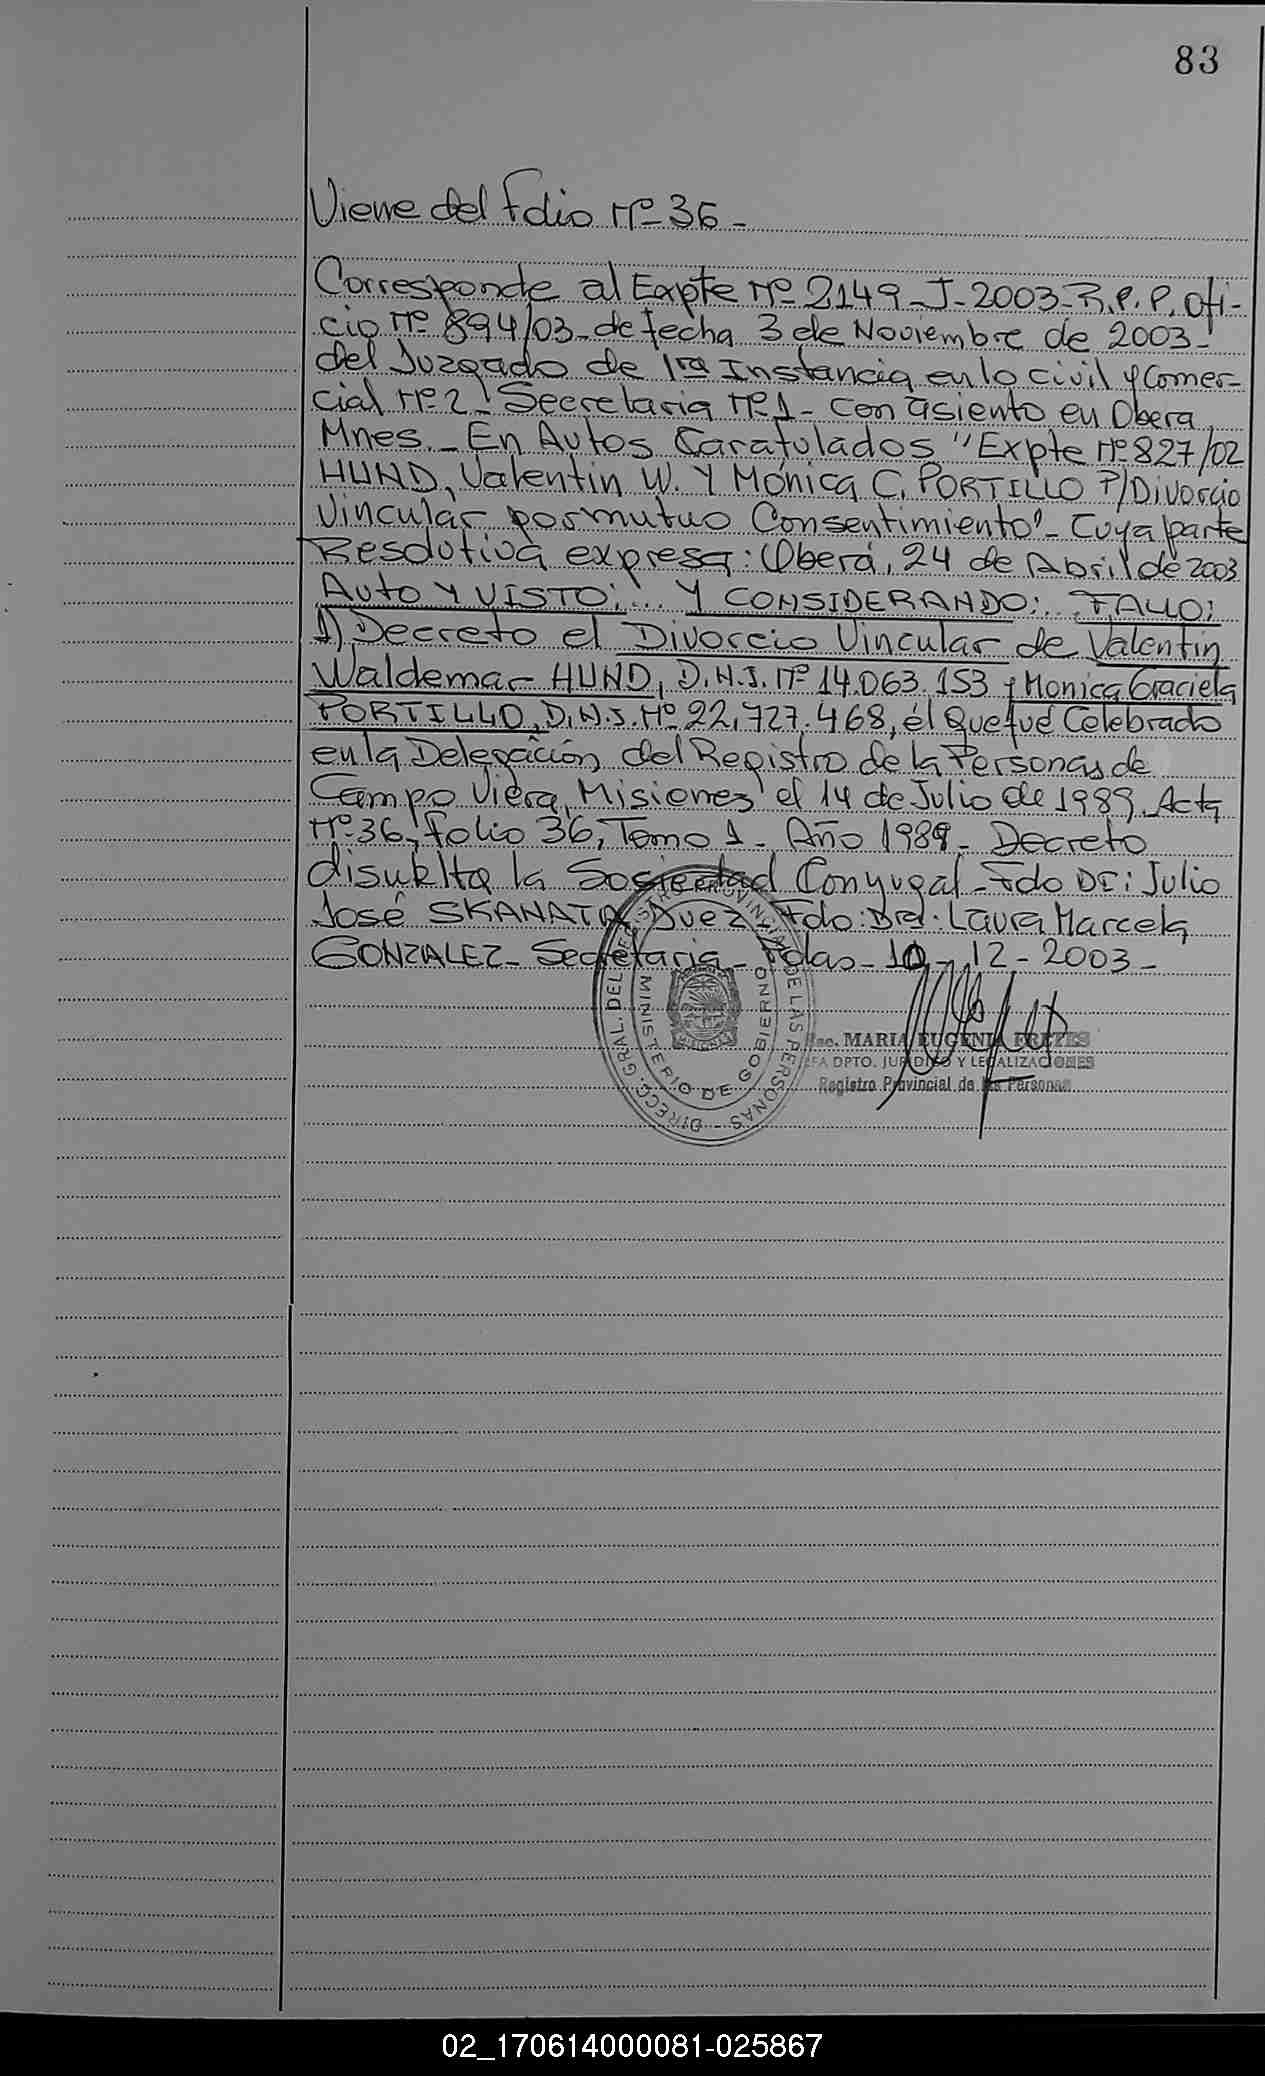 83
Viene del Folio Nº 36 -
Corresponde al Expte Nº 2149 - J - 2003 - R.P.P. Ofi-
cio Nº 894/03 - de fecha 3 de Noviembre de 2003 -
del Juzgado de 1ra Instancia en lo civil y Comer-
cial Nº 2 - Secretaria Nº 1 - con asiento en Obera,
Mnes. - En Autos Caratulados "Expte Nº 827/02
HUND, Valentin W. Y Mónica C. PORTILLO P/Divorcio
Vincular por mutuo Consentimiento" - Cuya parte
Resolutiva expresa: Oberá, 24 de Abril de 2003
Auto Y VISTO:... Y CONSIDERANDO:... FALLO:
1) Decreto el Divorcio Vincular de Valentin
Waldemar HUND, D.N.I. Nº 14.063.153 y Monica Graciela
PORTILLO, D.N.I. Nº 22.727.468, él que fué Celebrado
en la Delegación del Registro de la Personas de
Campo Viera, Misiones el 14 de Julio de 1989. Acta
Nº 36, folio 36, Tomo 1 - Año 1989 - Decreto
disuelta la Sociedad Conyugal - Fdo Dr: Julio
José SKANATA Juez - Fdo: Dra: Laura Marcela
GONZALEZ - Secretaria - Pdas - 10 - 12 - 2003 -
DIRECC. GRAL. DEL REG. PROVINCIAL DE LAS PERSONAS
MINISTERIO DE GOBIERNO
MARIA EUGENIA FRETES
DPTO. JURIDICO Y LEGALIZACIONES
Registro Provincial de las Personas
02_170614000081-025867